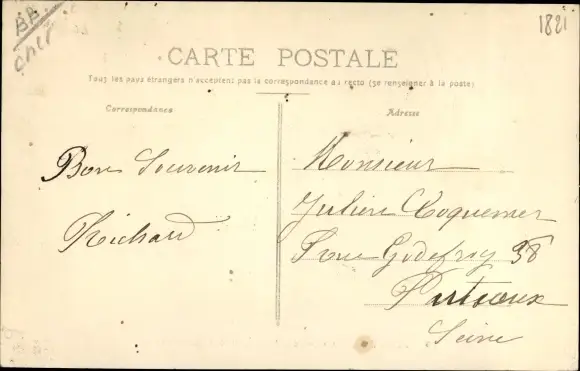 1821
CARTE POSTALE
Tous les pays étrangers n'acceptent pas la correspondance au recto (se renseigner à la poste)
Correspondance
Bon Souvenir
Richard
Adresse
Monsieur
Julien
Godefroy 38
Puteaux
Seine